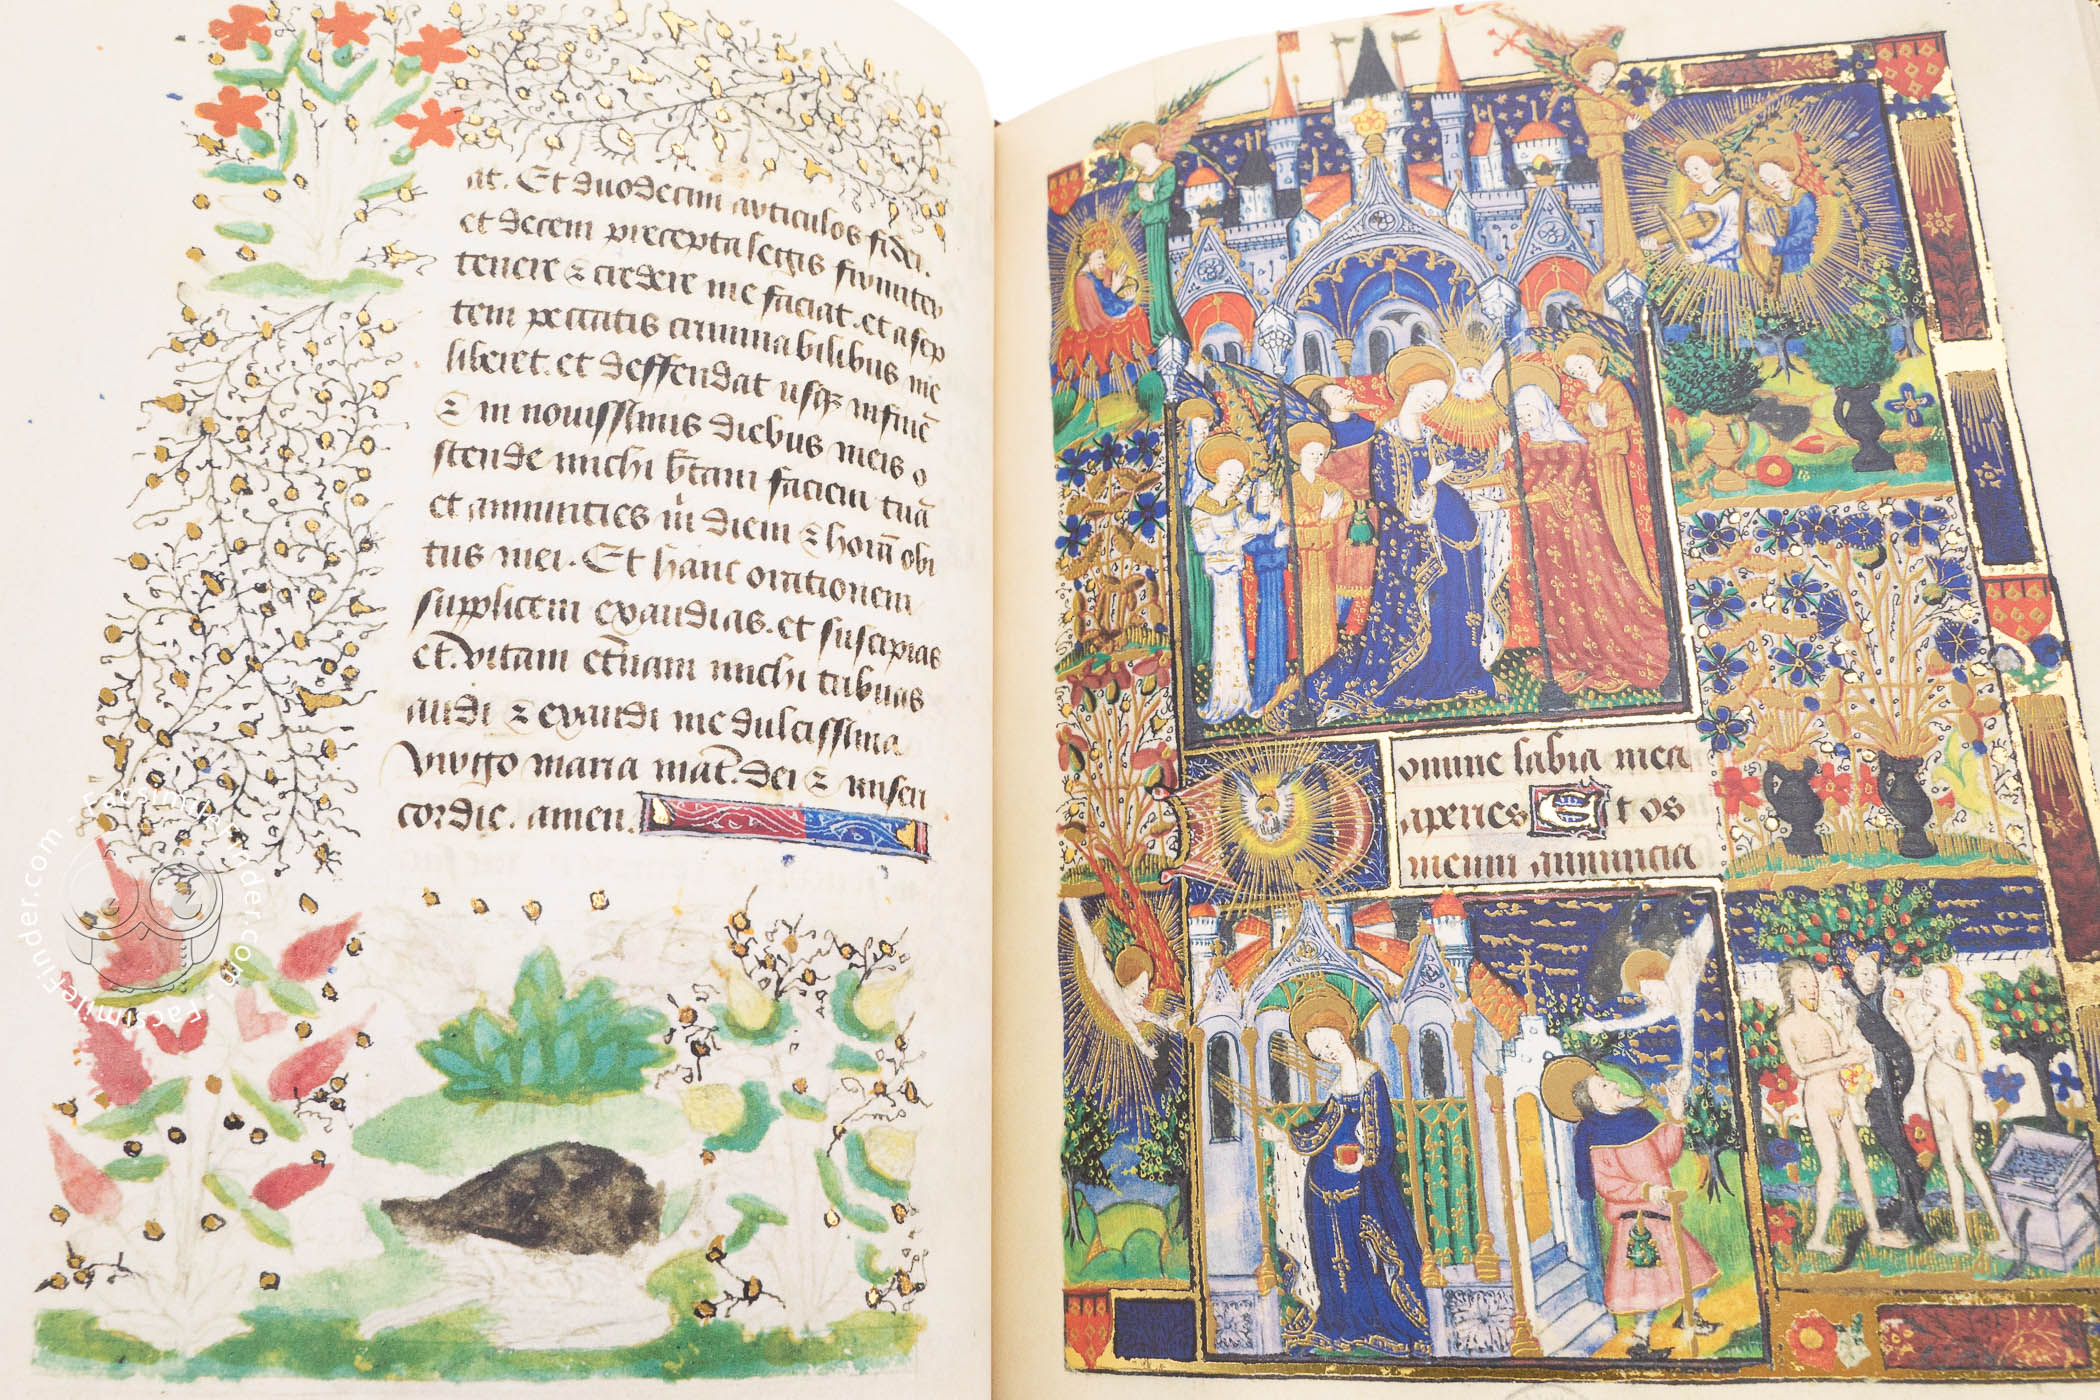 at. Et duodecim articulos fidei.
et decem precepta legis firmiter
tenere z credere me faciat. et a sep
tem peccatis criminabilibus me
liberet. et deffendat usqz in finē
z in nouissimis diebus meis o
stende michi btam faciem tuā
et annuncies m diem z horā obi
tus mei. Et hanc orationem
supplicem exaudias. et suscipias
et. vitam etnam michi tribuas
audi z exaudi me dulcissima
virgo maria mat. dei z miseri
cordie. amen.
omine labia mea
aperies Et os
meum annuncia
FacsimileFinder.com - FacsimileFinder.com